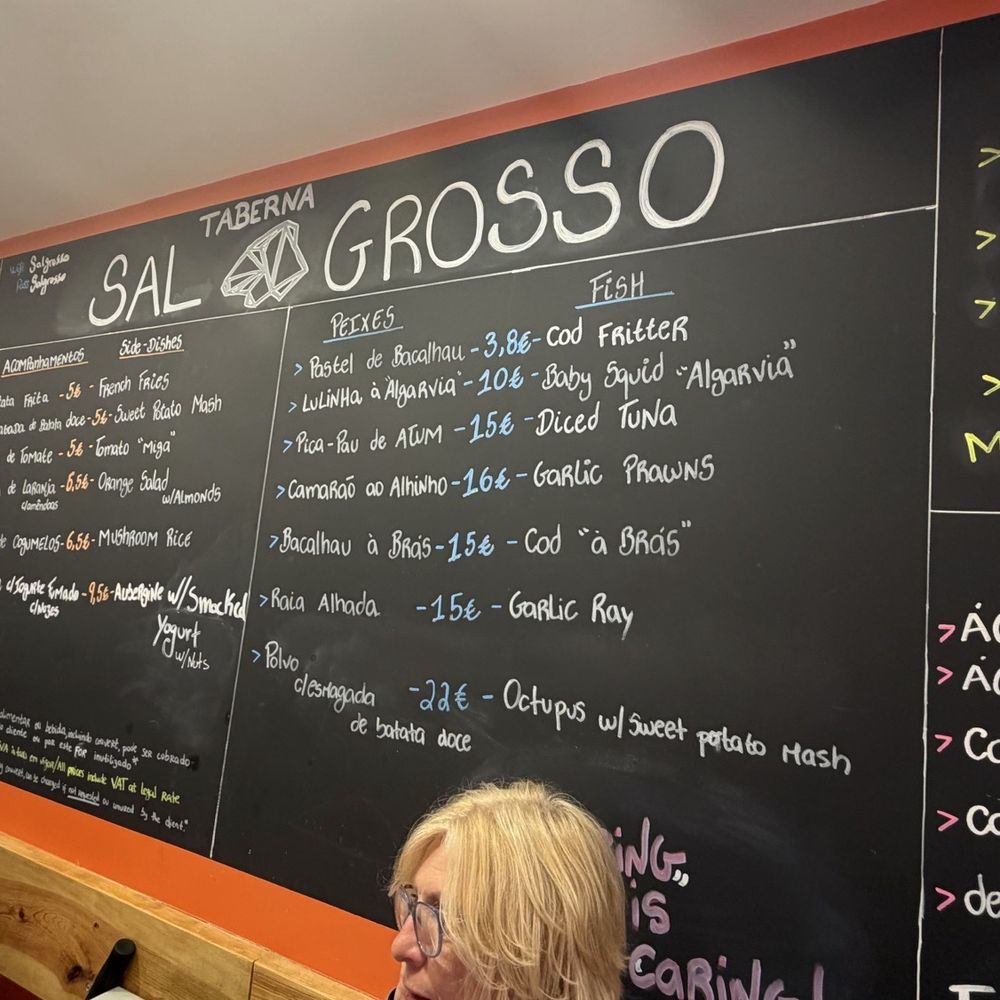 TABERNA
SAL GROSSO
Salgrosso
Salgrosso
ACOMPANHAMENTOS SIDE-DISHES
FRITA -5€ - FRENCH FRIES
de Batata doce -5€- Sweet Potato Mash
de Tomate -5€- Tomato "Miga"
de LARANJA -6,5€- ORANGE Salad
c/amêndoas w/ALMONDS
COGUMELOS -6,5€- MUSHROOM RICE
c/Iogurte Fumado -9,5€- AUBERGINE w/Smocked
c/nozes Yogurt
w/Nuts
alimentar ou bebida, incluindo couvert, pode SER cobrado
cliente ou por este FOR inutilizado"
All prices include VAT at legal RATE
can be charged if not requested or unused by the client."
PEIXES FISH
> Pastel de Bacalhau - 3,8€ - COD FRITTER
> LULINHA à "ALGARVIA" - 10€ - Baby Squid "ALGARVIA"
> Pica-Pau de ATUM - 15€ - Diced TUNA
> CAMARÃO AO Alhinho - 16€ - GARLIC PRAWNS
> Bacalhau à BRÁS - 15€ - Cod "à BRÁS"
> Raia Alhada - 15€ - GARLIC RAY
> Polvo
c/esmagada - 22€ - Octupus w/Sweet potato MASH
de batata doce
ING,,
is
CARING!
>
>
>
>
M
> Á
> Á
> Co
> Co
> de